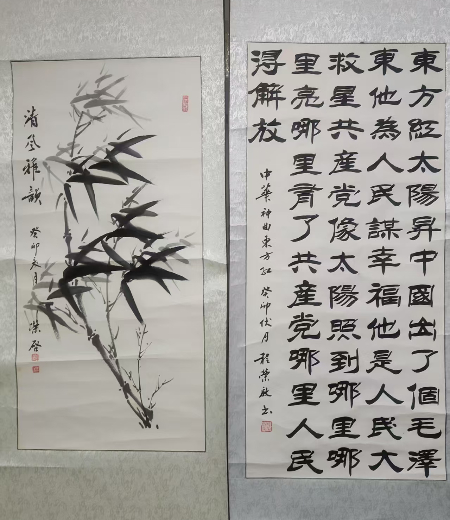 東方紅太陽昇中國出了個毛澤
東他為人民謀幸福他是人民大
救星共産党像太陽照到哪里哪
里亮哪里有了共産党哪里人民
得解放
中華神曲東方紅 癸卯伏月 程榮啟书
清風雅韻
癸卯 月 榮啓